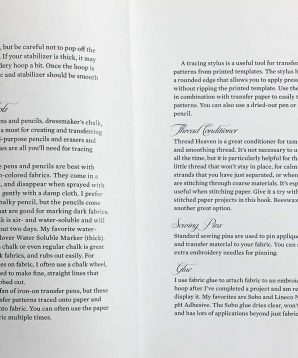 , but be careful not to pop off the
. If your stabilizer is thick, it may
dery hoop a bit. Once the hoop is
ic and stabilizer should be smooth
ols
ns and pencils, dressmaker's chalk,
a must for creating and transferring
ti-purpose pencils and erasers and
ies are all you'll need for tracing
e pens and pencils are best with
n-colored fabrics. They come in a
s, and disappear when sprayed with
gently with a damp cloth. I prefer
halky pencil, but the pencils come
at are good for marking dark fabrics.
k is air- and water-soluble and will
out two days. My favorite water-
lover Water Soluble Marker (thick).
s chalk or even regular chalk is great
k fabrics, and rubs out easily. For
es on fabric, I often use a chalk wheel,
ed to make fine, straight lines that
bbed out.
fan of iron-on transfer pens, but these
sfer patterns traced onto paper and
onto fabric. You can often use the paper
bric multiple times.
A tracing stylus is a useful tool for transfer
patterns from printed templates. The stylus h
a rounded edge that allows you to apply press
without ripping the printed template. Use the
in combination with transfer paper to easily t
patterns. You can also use a dried-out pen or
pencil.
Thread Conditioner
Thread Heaven is a great conditioner for tam
and smoothing thread. It's not necessary to u
all the time, but it is particularly helpful for th
little thread that won't stay in place, for calm
strands that you have just separated, or when
are stitching through coarse materials. It's esp
useful when stitching paper. Give it a try with
stitched paper projects in this book. Beeswax
another great option.
Sewing Pins
Standard sewing pins are used to pin appliqu
and transfer material to your fabric. You can
extra embroidery needles for pinning.
Glue
I use fabric glue to attach fabric to an embroi
hoop after I've completed a project and am re
display it. My favorites are Sobo and Lineco N
pH Adhesive. The Sobo glue dries clear, won't
and has lots of applications beyond just fabri